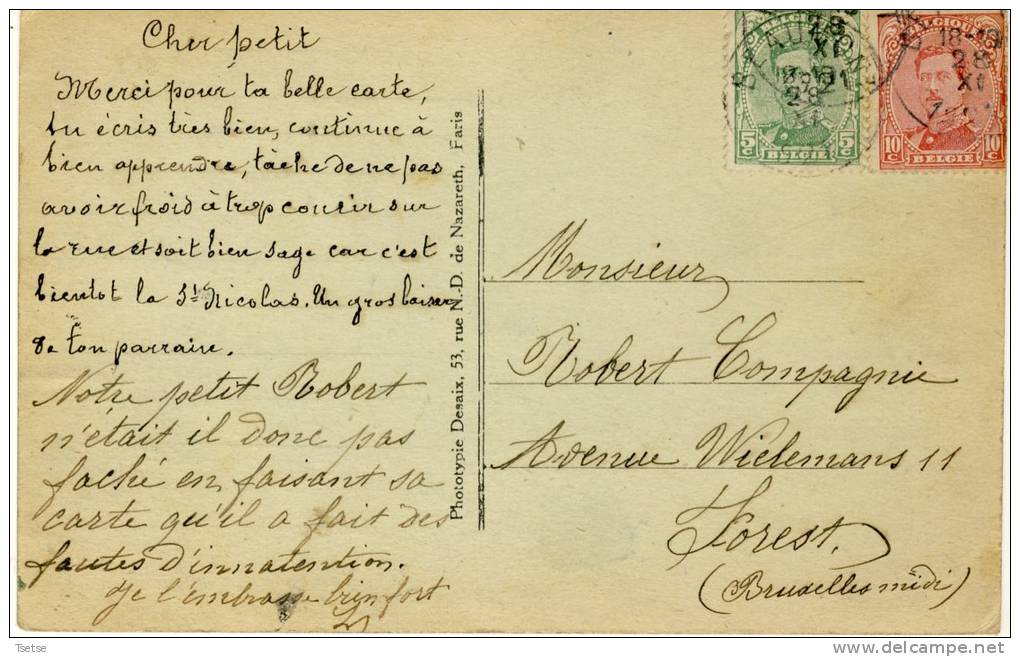 Cher petit
Merci pour ta belle carte,
tu écris très bien, continue à
bien apprendre, tâche de ne pas
avoir froid à trop courir sur
la rue et soit bien sage car c'est
bientot la St Nicolas. Un gros baiser
de ton parrain.
Notre petit Robert
n'était il donc pas
faché en faisant sa
carte qu'il a fait des
fautes d'innatention.
Je l'embrasse bien fort
Phototypie Desaix, 53, rue N.-D. de Nazareth, Paris
BELGIQUE
5c 5c
BELGIE
18
XI
28
BELGIQUE
18-19
28
XI
10c 10c
BELGIE
Monsieur
Robert Compagnie
Avenue Wielemans 11
Forest.
(Bruxelles midi)
Tsetse
www.delcampe.net